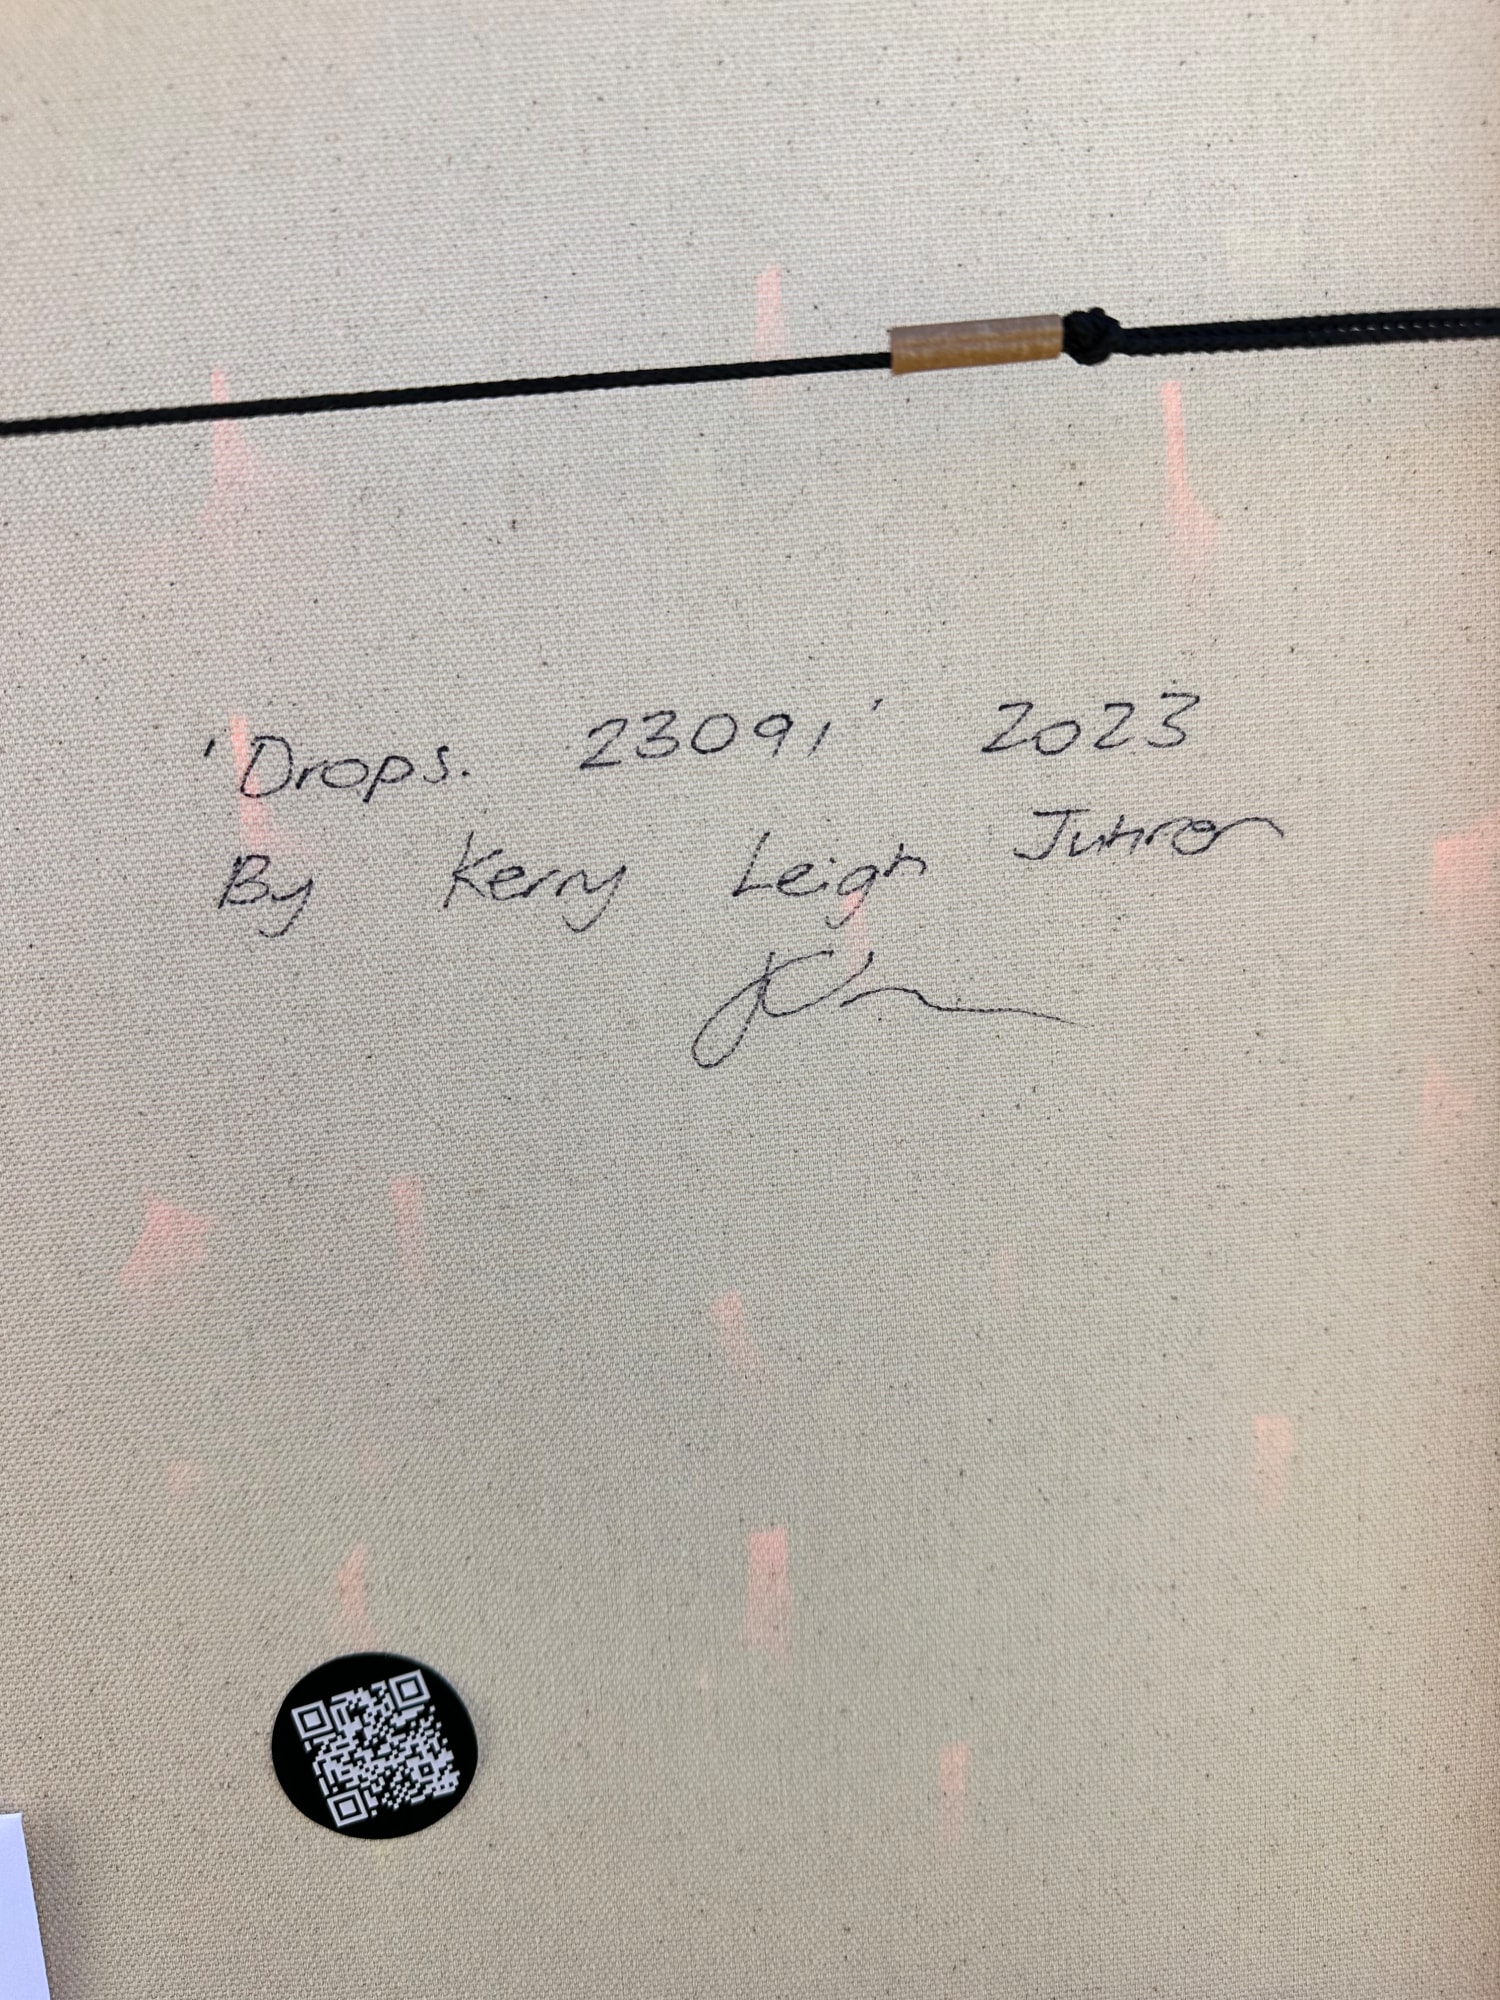 'Drops. 23091' 2023
By Kerry Leigh